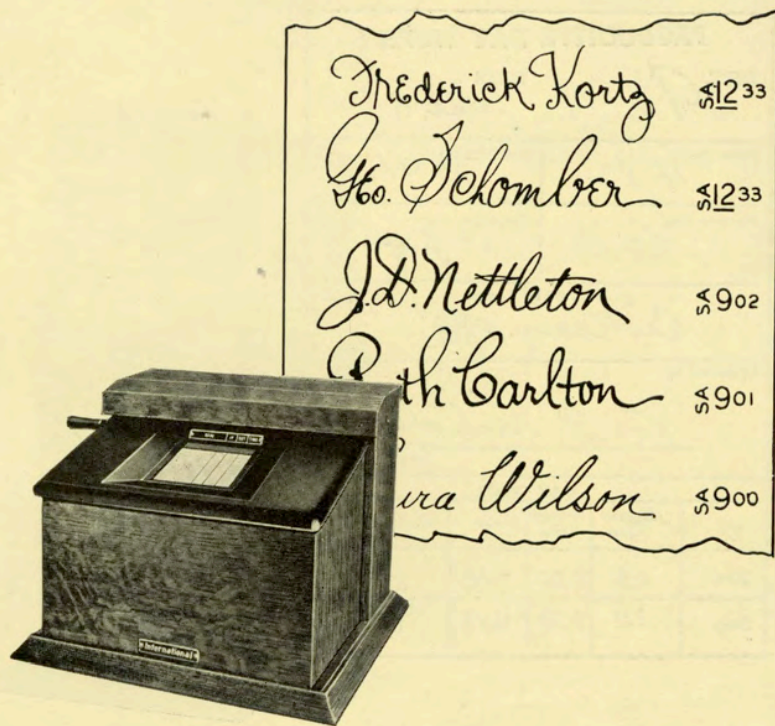 Frederick Kortz SA 12 33
Geo. Schomber SA 12 33
J.D. Nettleton SA 9 02
Ruth Carlton SA 9 01
Wilson SA 9 00
International